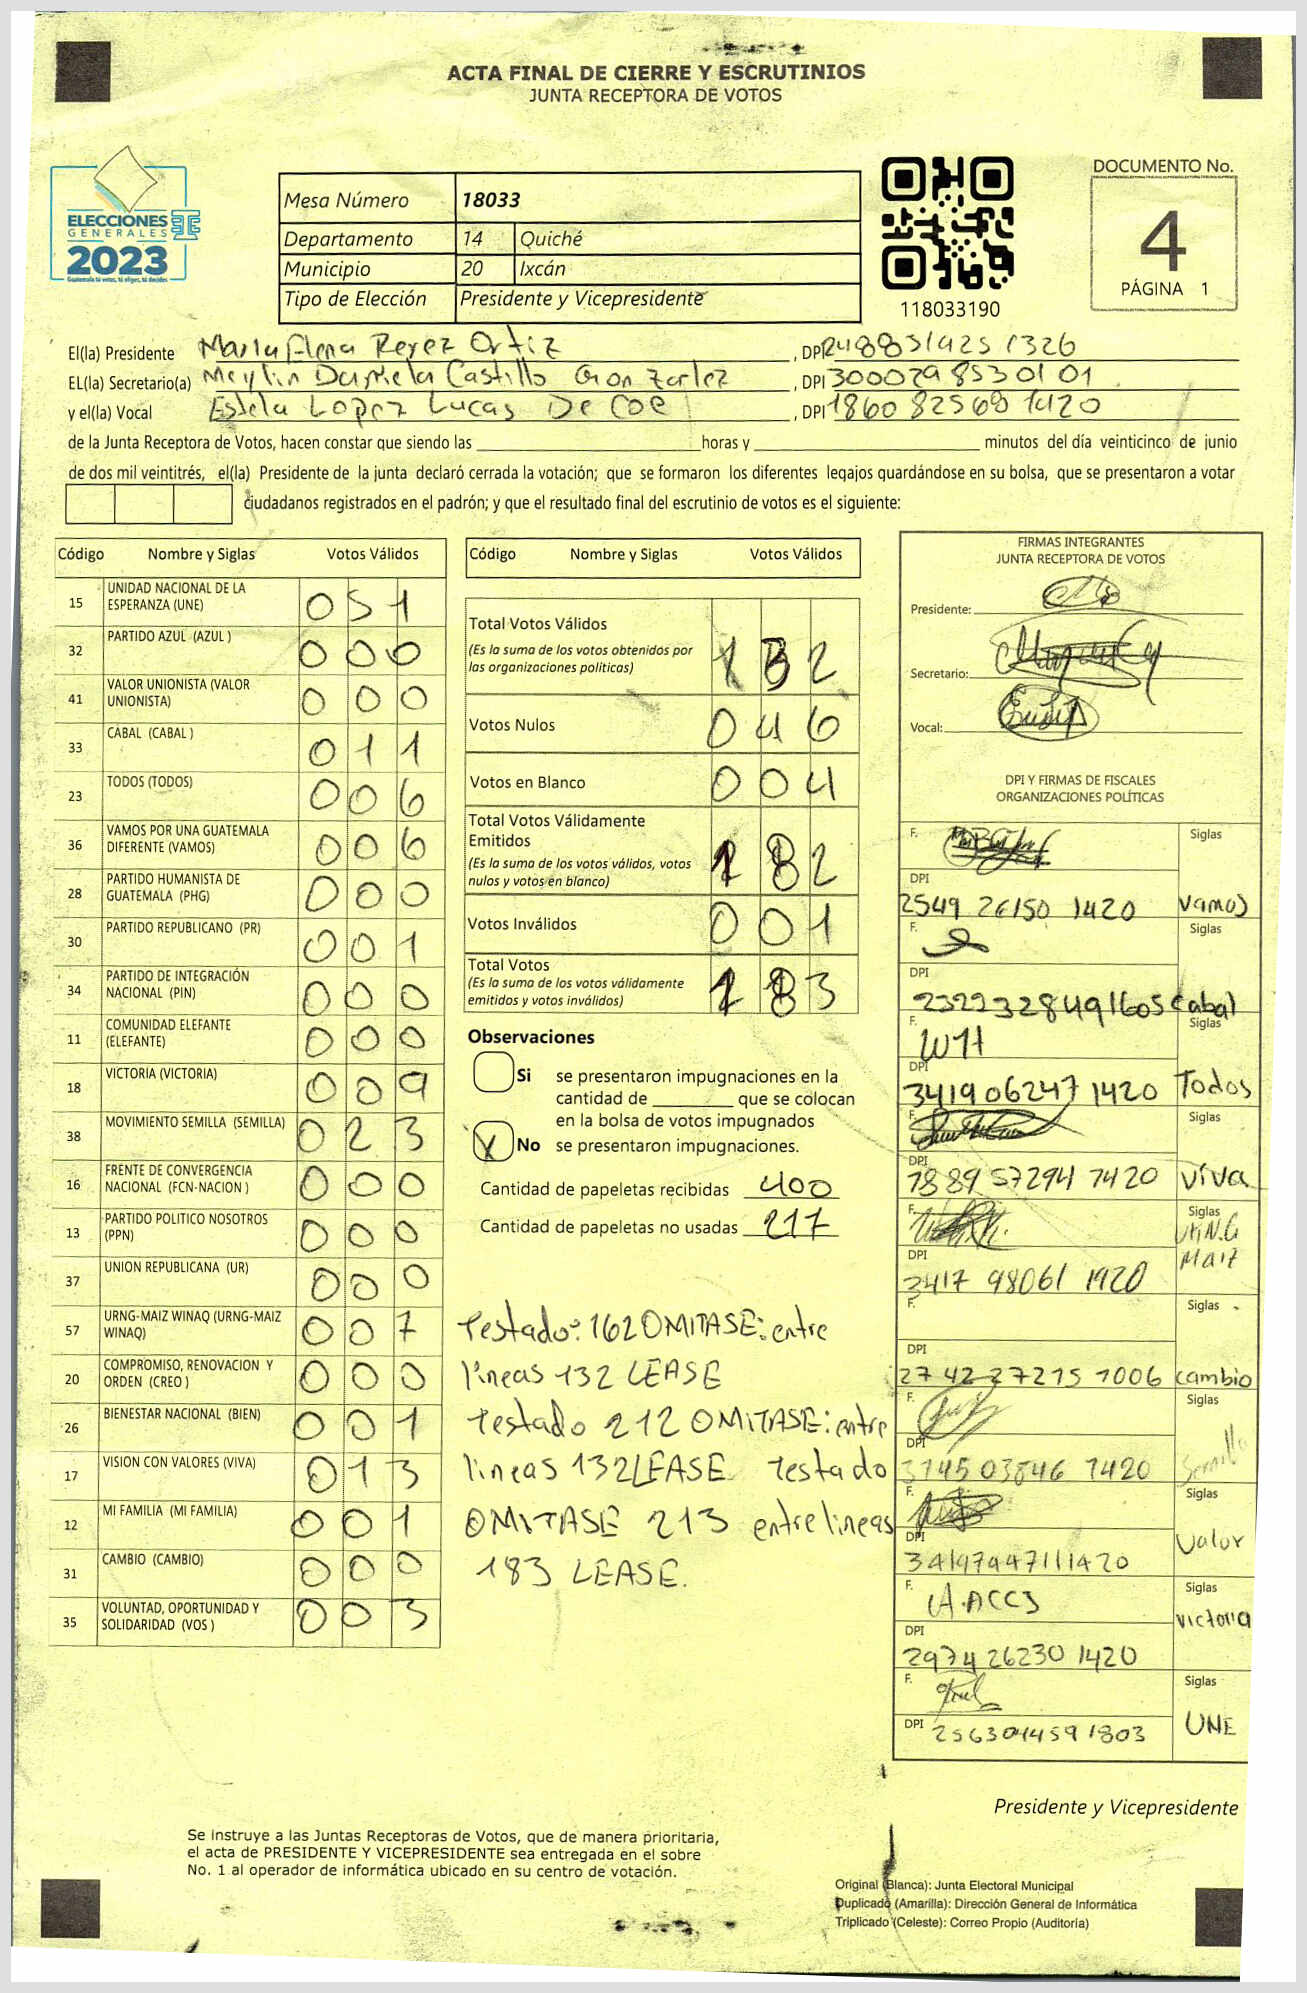 ACTA FINAL DE CIERRE Y ESCRUTINIOS
JUNTA RECEPTORA DE VOTOS
ELECCIONES
GENERALES
2023
Guatemala tú votas, tú eliges, tú decides
Mesa Número 18033
Departamento 14 Quiché
Municipio 20 Ixcán
Tipo de Elección Presidente y Vicepresidente
118033190
DOCUMENTO No.
4
PÁGINA 1
El(la) Presidente Maria Elena Reyez Ortiz, DPI 248831925 1326
EL(la) Secretario(a) Meylin Daniela Castillo Gonzarlez, DPI 300029853 0101
y el(la) Vocal Estela Lopez Lucas De Coc, DPI 1860 82568 1420
de la Junta Receptora de Votos, hacen constar que siendo las horas y minutos del día veinticinco de junio
de dos mil veintitrés, el(la) Presidente de la junta declaró cerrada la votación; que se formaron los diferentes legajos guardándose en su bolsa, que se presentaron a votar
ciudadanos registrados en el padrón; y que el resultado final del escrutinio de votos es el siguiente:
Código Nombre y Siglas Votos Válidos
15 UNIDAD NACIONAL DE LA ESPERANZA (UNE) 051
32 PARTIDO AZUL (AZUL ) 000
41 VALOR UNIONISTA (VALOR UNIONISTA) 000
33 CABAL (CABAL ) 011
23 TODOS (TODOS) 006
36 VAMOS POR UNA GUATEMALA DIFERENTE (VAMOS) 006
28 PARTIDO HUMANISTA DE GUATEMALA (PHG) 000
30 PARTIDO REPUBLICANO (PR) 001
34 PARTIDO DE INTEGRACIÓN NACIONAL (PIN) 000
11 COMUNIDAD ELEFANTE (ELEFANTE) 000
18 VICTORIA (VICTORIA) 009
38 MOVIMIENTO SEMILLA (SEMILLA) 023
16 FRENTE DE CONVERGENCIA NACIONAL (FCN-NACION ) 000
13 PARTIDO POLITICO NOSOTROS (PPN) 000
37 UNION REPUBLICANA (UR) 000
57 URNG-MAIZ WINAQ (URNG-MAIZ WINAQ) 007
20 COMPROMISO, RENOVACION Y ORDEN (CREO ) 000
26 BIENESTAR NACIONAL (BIEN) 001
17 VISION CON VALORES (VIVA) 013
12 MI FAMILIA (MI FAMILIA) 001
31 CAMBIO (CAMBIO) 000
35 VOLUNTAD, OPORTUNIDAD Y SOLIDARIDAD (VOS ) 003
Código Nombre y Siglas Votos Válidos
Total Votos Válidos
(Es la suma de los votos obtenidos por las organizaciones políticas) 132
Votos Nulos 046
Votos en Blanco 004
Total Votos Válidamente Emitidos
(Es la suma de los votos válidos, votos nulos y votos en blanco) 182
Votos Inválidos 001
Total Votos
(Es la suma de los votos válidamente emitidos y votos inválidos) 183
Observaciones
Si se presentaron impugnaciones en la
cantidad de que se colocan
en la bolsa de votos impugnados
X No se presentaron impugnaciones.
Cantidad de papeletas recibidas 400
Cantidad de papeletas no usadas 217
Testado: 162 OMITASE: entre
lineas 132 LEASE
Testado 212 OMITASE: entre
lineas 132 LEASE Testado
OMITASE 213 entre lineas
183 LEASE.
FIRMAS INTEGRANTES
JUNTA RECEPTORA DE VOTOS
Presidente:
Secretario:
Vocal:
DPI Y FIRMAS DE FISCALES
ORGANIZACIONES POLÍTICAS
F. Siglas
DPI 2549 26150 1420 Vamos
F. Siglas
DPI 2322328491605 Cabal
F. Siglas
DPI 3419062471420 Todos
F. Siglas
DPI 1889 57294 1420 Viva
F. Siglas
DPI 3417 98061 1420 Maiz
F. Siglas
DPI 27 42 27215 1006 cambio
F. Siglas
DPI 3745 03846 1420 Semilla
F. Siglas
DPI 3419794711420 Valor
F. A.ACCS Siglas
DPI 2974 26230 1420 victoria
F. Siglas
DPI 2563044591803 UNE
Presidente y Vicepresidente
Se instruye a las Juntas Receptoras de Votos, que de manera prioritaria,
el acta de PRESIDENTE Y VICEPRESIDENTE sea entregada en el sobre
No. 1 al operador de informática ubicado en su centro de votación.
Original (Blanca): Junta Electoral Municipal
Duplicado (Amarilla): Dirección General de Informática
Triplicado (Celeste): Correo Propio (Auditoría)